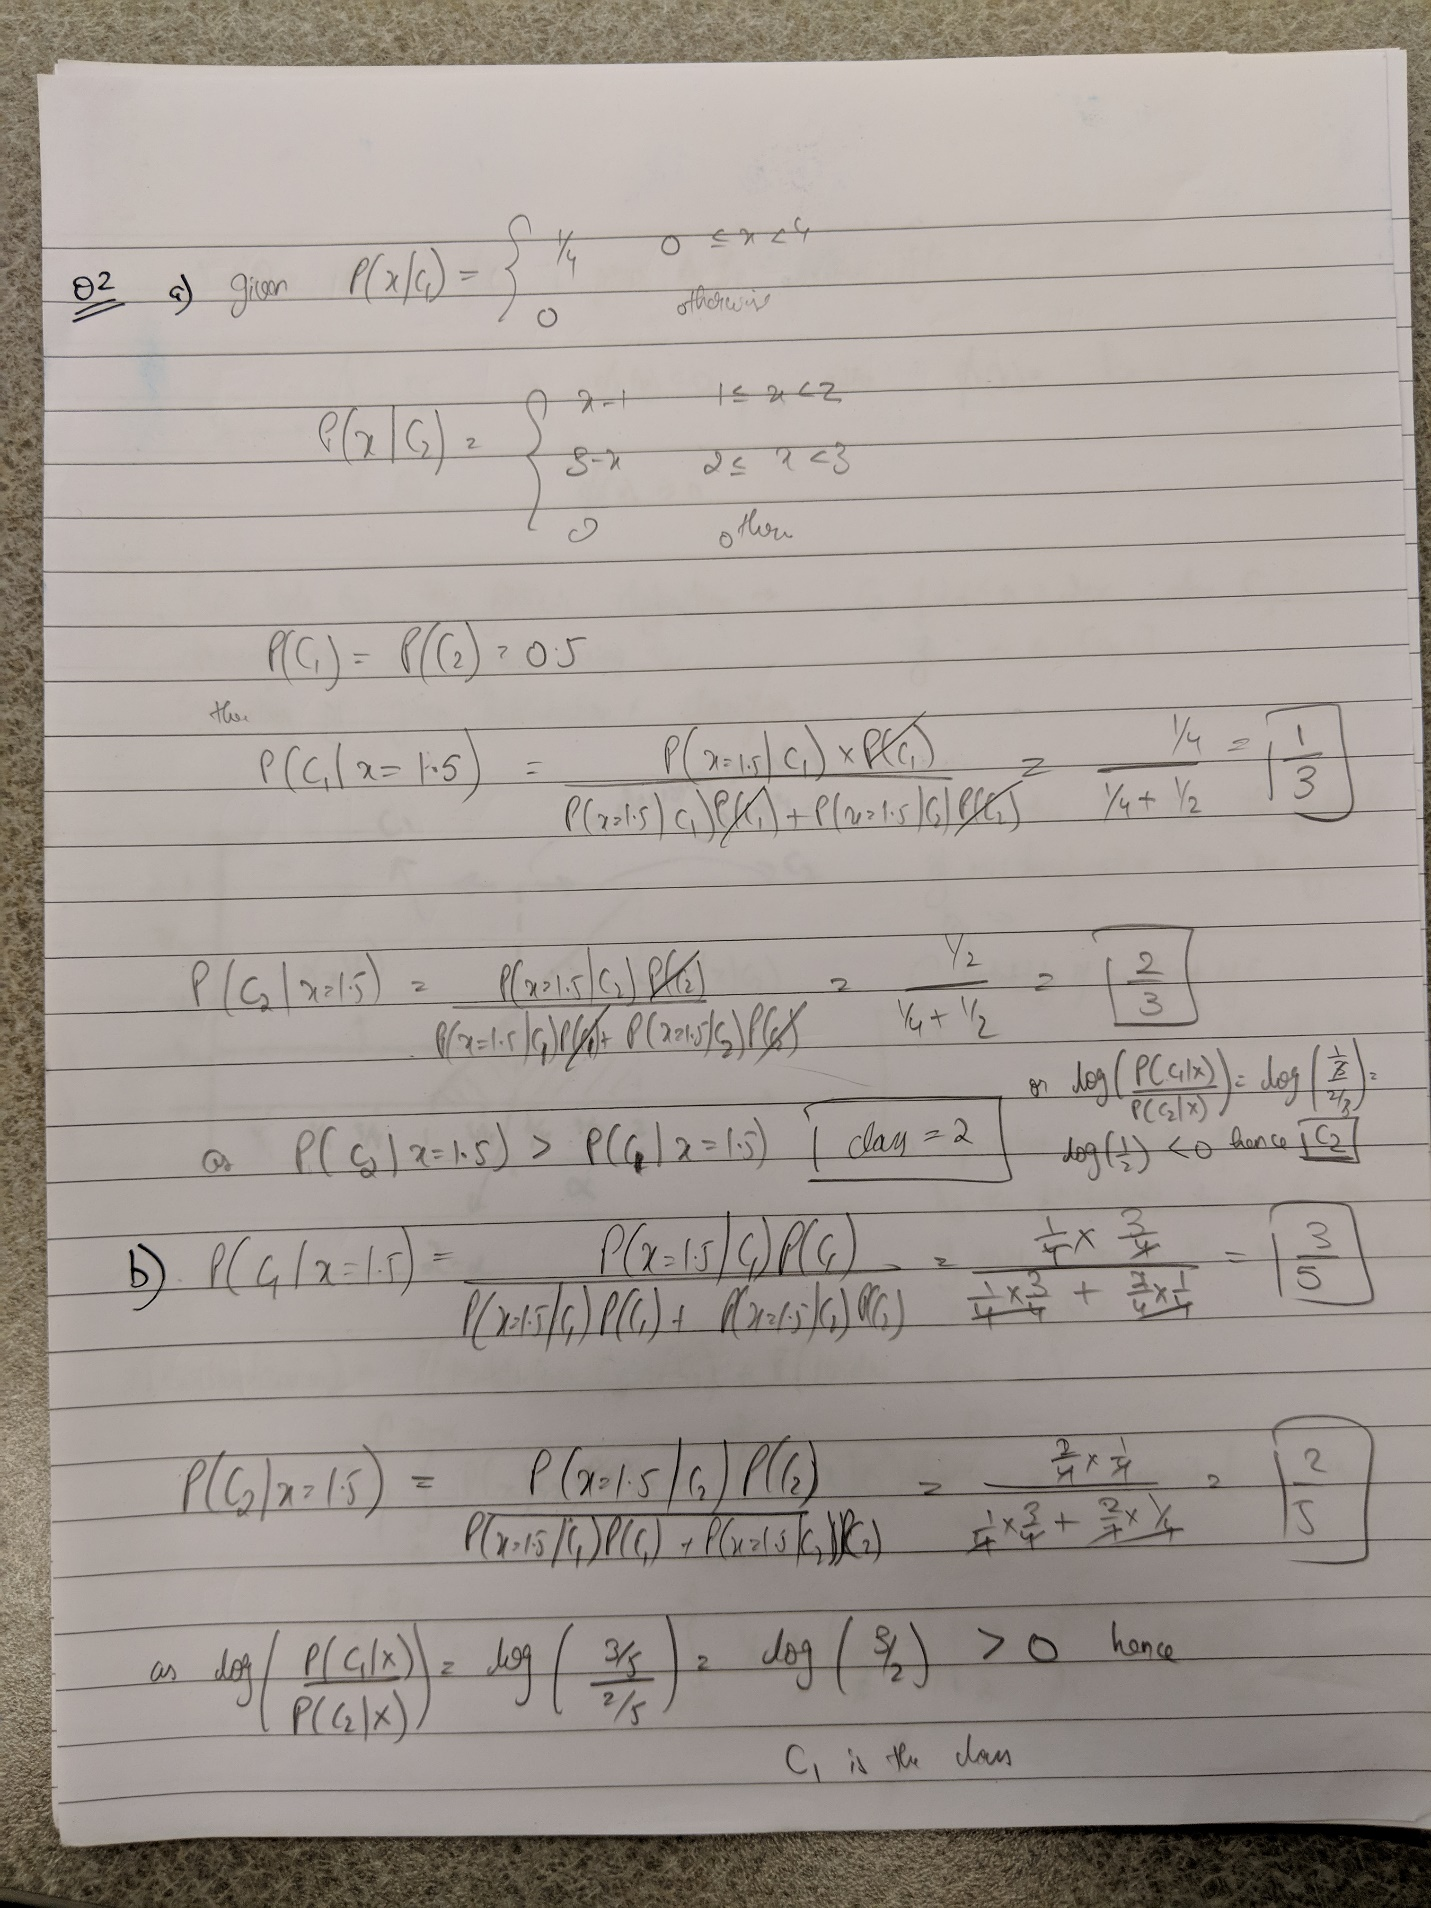 Q2 a) given P(x|C₁) = { 1/4 0 ≤ x < 4
0 otherwise
P(x|C₂) = { x-1 1 ≤ x < 2
3-x 2 ≤ x < 3
0 other
P(C₁) = P(C₂) = 0.5
then
P(C₁|x=1.5) = P(x=1.5|C₁) × P(C₁) / P(x=1.5|C₁)P(C₁) + P(x=1.5|C₂)P(C₂) = 1/4 / 1/4 + 1/2 = 1/3
P(C₂|x=1.5) = P(x=1.5|C₂) P(C₂) / P(x=1.5|C₁)P(C₁) + P(x=1.5|C₂)P(C₂) = 1/2 / 1/4 + 1/2 = 2/3
as P(C₂|x=1.5) > P(C₁|x=1.5) class = 2
or log(P(C₁|x) / P(C₂|x)) = log(1/3 / 2/3) =
log(1/2) < 0 hence C₂
b) P(C₁|x=1.5) = P(x=1.5|C₁)P(C₁) / P(x=1.5|C₁)P(C₁) + P(x=1.5|C₂)P(C₂) = 1/4 × 3/4 / 1/4 × 3/4 + 2/4 × 1/4 = 3/5
P(C₂|x=1.5) = P(x=1.5|C₂)P(C₂) / P(x=1.5|C₁)P(C₁) + P(x=1.5|C₂)P(C₂) = 2/4 × 1/4 / 1/4 × 3/4 + 2/4 × 1/4 = 2/5
as log(P(C₁|x) / P(C₂|x)) = log(3/5 / 2/5) = log(3/2) > 0 hence
C₁ is the class